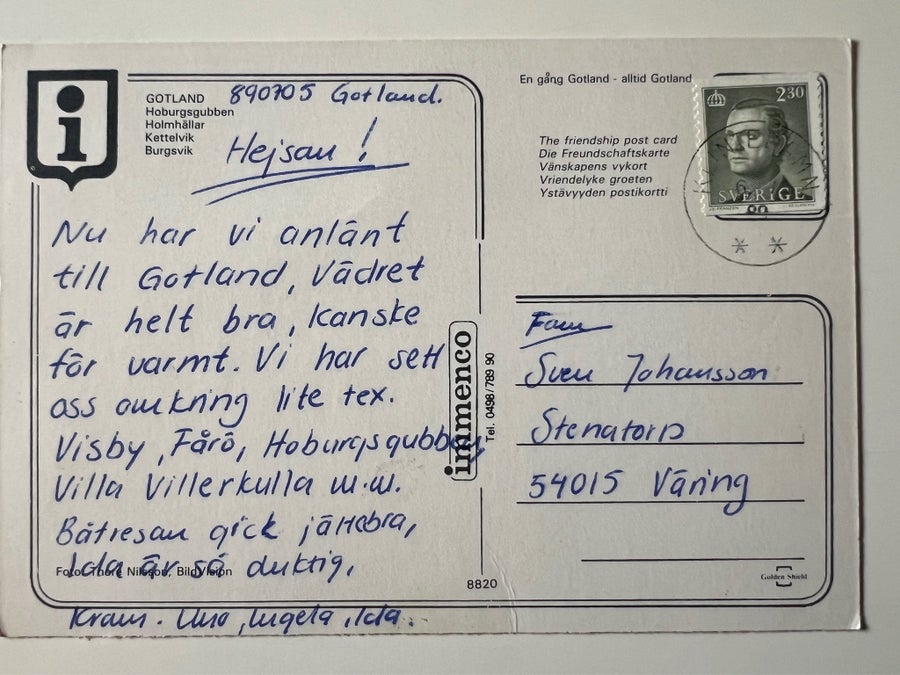 GOTLAND
Hoburgsgubben
Holmhällar
Kettelvik
Burgsvik
890705 Gotland.
Hejsan!
Nu har vi anlänt
till Gotland, Vädret
är helt bra, kanske
för varmt. Vi har sett
oss omkring lite tex.
Visby, Fårö, Hoburgsgubben,
Villa Villerkulla m.m.
Båtresan gick jättebra,
Ida är så duktig,
Foto: Thore Nilsson, BildVision
Kram. Uno, Ingela, Ida.
immenco
Tel. 0498/789 90
8820
En gång Gotland - alltid Gotland
The friendship post card
Die Freundschaftskarte
Vänskapens vykort
Vriendelyke groeten
Ystävyyden postikortti
230
SVERIGE
Fam
Sven Johansson
Stenatorp
54015 Väring
Golden Shield